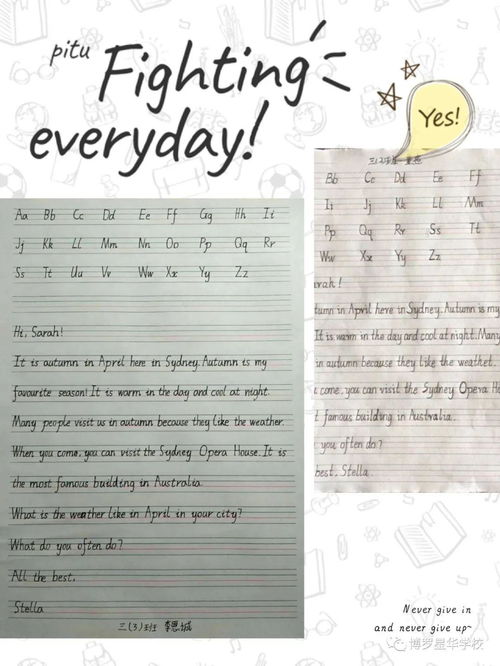 pitu
Fighting
everyday!
Yes!
Aa Bb Cc Dd Ee Ff Gg Hh Ii
Jj Kk Ll Mm Nn Oo Pp Qq Rr
Ss Tt Uu Vv Ww Xx Yy Zz
Hi, Sarah!
It is autumn in April here in Sydney. Autumn is my
favourite season! It is warm in the day and cool at night.
Many people visit us in autumn because they like the weather.
When you come, you can visit the Sydney Opera House. It is
the most famous building in Australia.
What is the weather like in April in your city?
What do you often do?
All the best,
Stella
三(3)班
Bb Cc Dd Ee Ff
Ii Jj Kk Ll Mm
Pp Qq Rr Ss Tt
Ww Xx Yy Zz
arah!
tumn in April here in Sydney. Autumn is my
It is warm in the day and cool at night. Many
in autumn because they like the weather.
come, you can visit the Sydney Opera House
t famous building in Australia.
you often do?
best, Stella.
Never give in
and never give up~
博罗星华学校